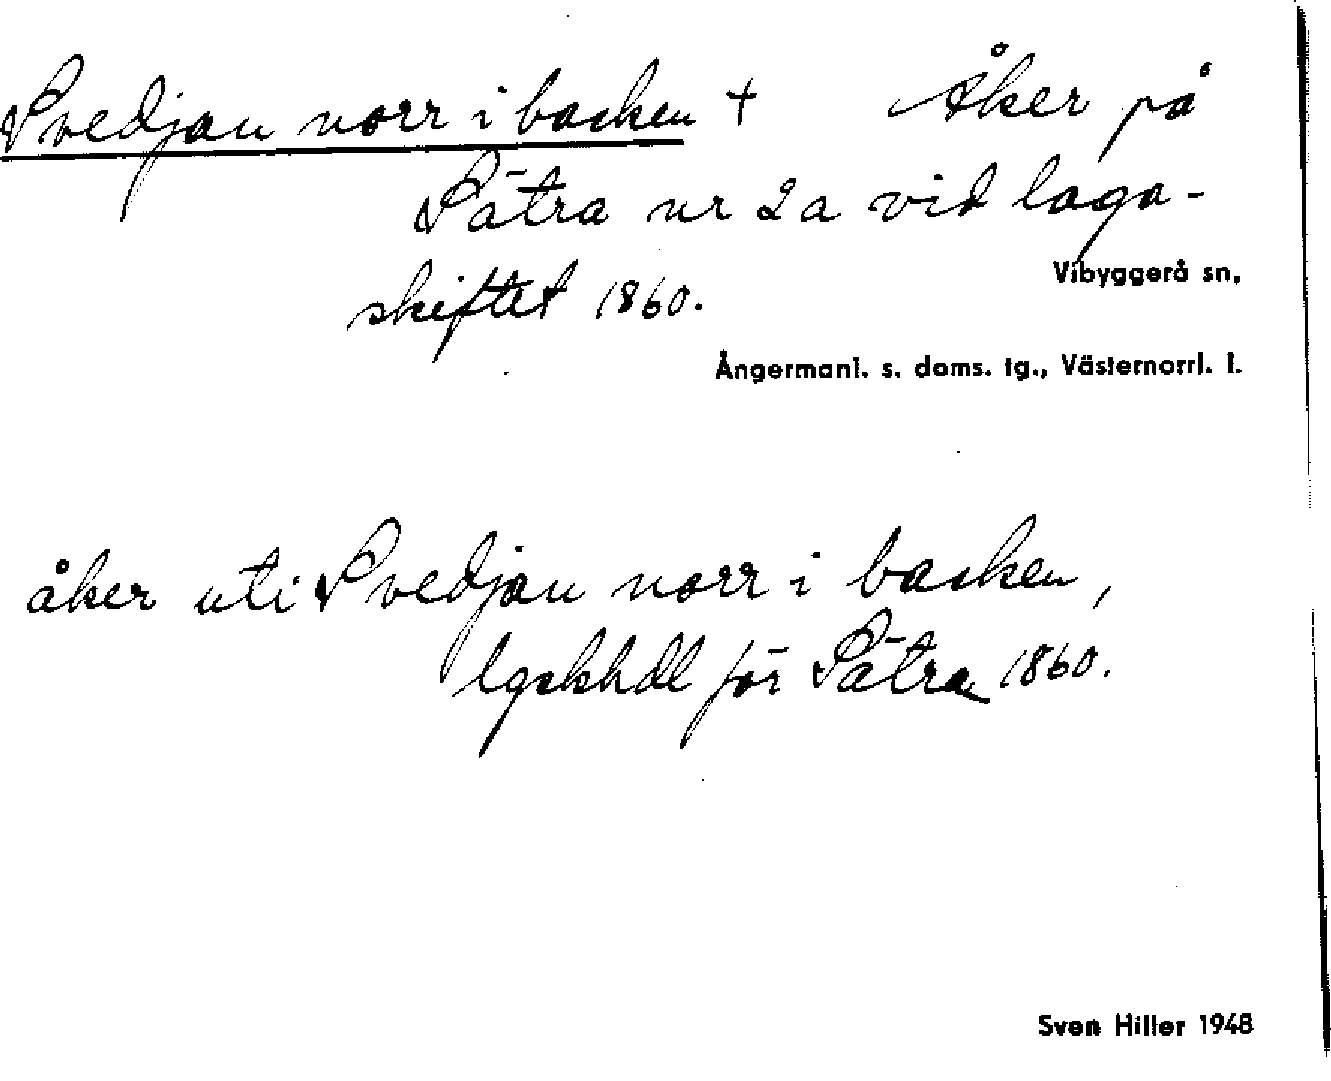 Svedjan norr i backen + Åker på
Sätra nr 2a vid laga-
skiftet 1860.
Vibyggerå sn.
Ångermanl. s. doms. tg., Västernorrl. l.
åker uti Svedjan norr i backen,
lgskhdl för Sätra 1860.
Sven Hiller 1948